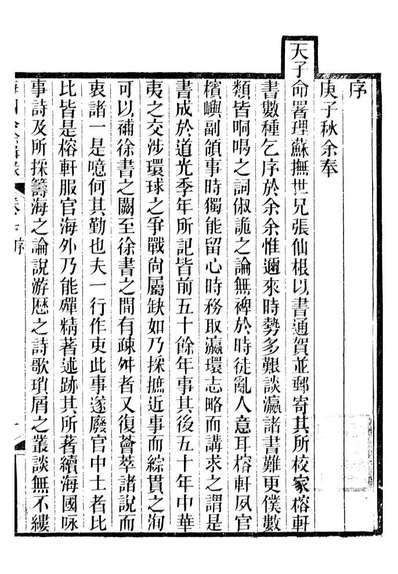 序
庚子秋余奉
天子命署理蘇撫世兄張仙根以書通賀並郵寄其所校家榕軒
書數種乞序於余余惟邇來時勢多艱談瀛諸書難更僕數
類皆啁噱之詞俶詭之論無裨於時徒亂人意耳榕軒夙官
檳嶼副領事時獨能留心時務取瀛環志略而講求之謂是
書成於道光季年所記皆前五十餘年事其後五十年中華
夷之交涉環球之爭戰尚屬缺如乃採摭近事而綜貫之洵
可以補徐書之闕至徐書之間有疎舛者又復薈萃諸說而
衷諸一是噫何其勤也夫一行作吏此事遂廢官中土者比
比皆是榕軒服官海外乃能殫精著述跡其所著續海國咏
事詩及所採籌海之論說游歷之詩歌瑣屑之叢談無不縷